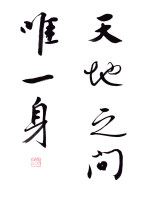 天地之间
唯一身